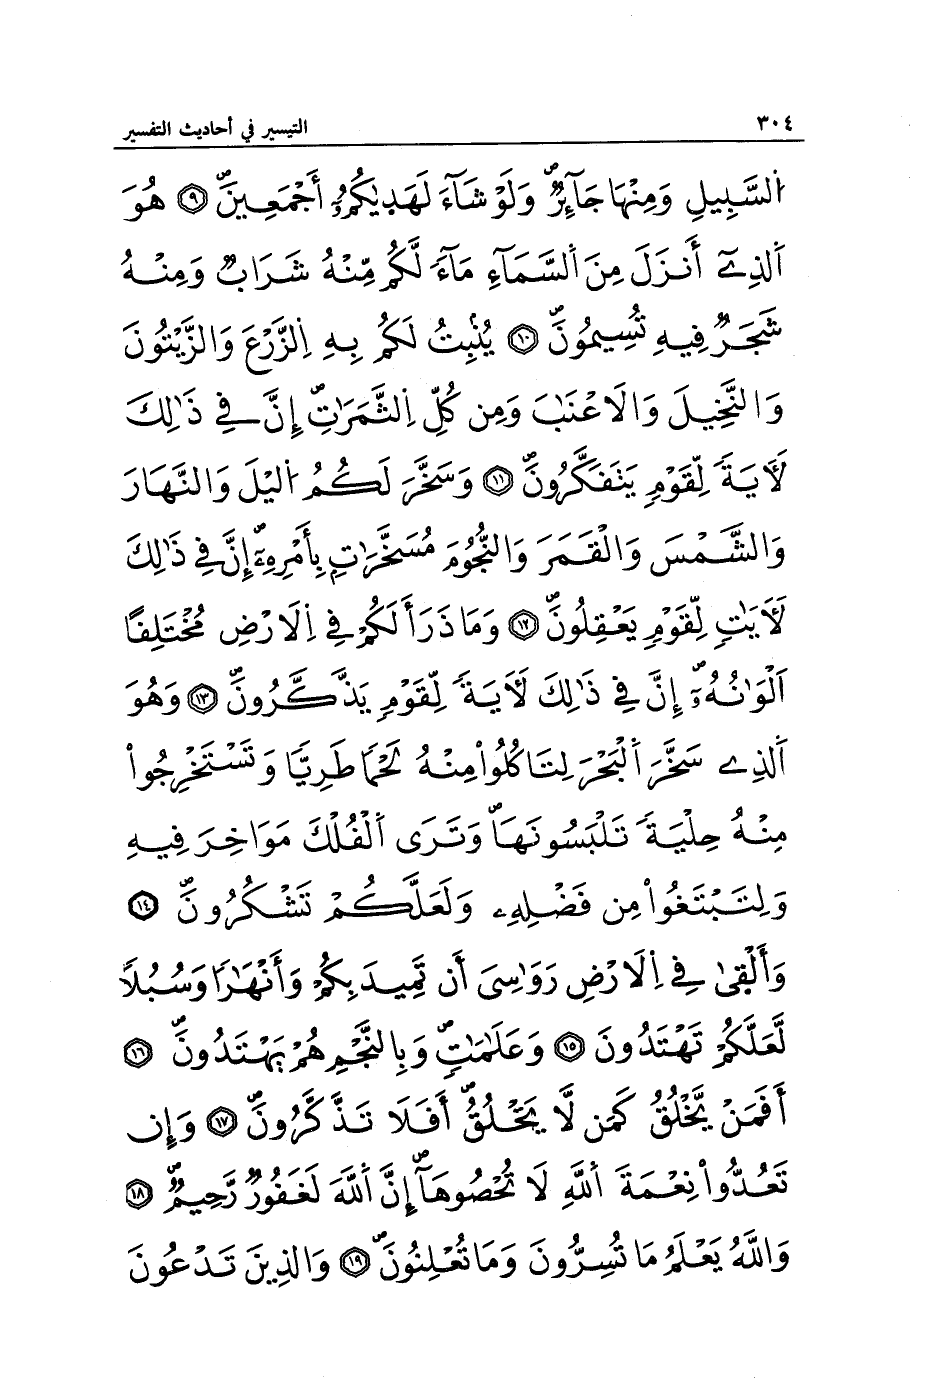 ٣٠٤ التيسير في أحاديث التفسير
اَ۬لسَّبِيلِ وَمِنْهَا جَآئِرٞۖ وَلَوْ شَآءَ لَهَدٜيٰكُمُۥٓ أَجْمَعِينَۖ ۝٩ هُوَ
اَ۬لذِےٓ أَنزَلَ مِنَ اَ۬لسَّمَآءِ مَآءٗ لَّكُم مِّنْهُ شَرَابٞ وَمِنْهُ
شَجَرٞ فِيهِ تُسِيمُونَۖ ۝١٠ يُنۢبِتُ لَكُم بِهِ اِ۬لزَّرْعَ وَالزَّيْتُونَ
وَالنَّخِيلَ وَالَاعْنَٰبَ وَمِن كُلِّ اِ۬لثَّمَرَٰتِۖ إِنَّ فِے ذَٰلِكَ
لَأٓيَةٗ لِّقَوْمٖ يَتَفَكَّرُونَۖ ۝١١ وَسَخَّرَ لَكُمُ اُ۬ليْلَ وَالنَّهَارَ
وَالشَّمْسَ وَالْقَمَرَ وَالنُّجُومَ مُسَخَّرَٰتِۢ بِأَمْرِهِۦٓۖ إِنَّ فِے ذَٰلِكَ
لَأٓيَٰتٖ لِّقَوْمٖ يَعْقِلُونَۖ ۝١٢ وَمَا ذَرَأَ لَكُمْ فِے اِ۬لَارْضِ مُخْتَلِفاً
اَلْوَٰنُهُۥٓۖ إِنَّ فِے ذَٰلِكَ لَأٓيَةٗ لِّقَوْمٖ يَذَّكَّرُونَۖ ۝١٣ وَهُوَ
اَ۬لذِے سَخَّرَ اَ۬لْبَحْرَ لِتَاكُلُواْ مِنْهُ لَحْماٗ طَرِيّاٗ وَتَسْتَخْرِجُواْ
مِنْهُ حِلْيَةٗ تَلْبَسُونَهَاۖ وَتَرَى اَ۬لْفُلْكَ مَوَاخِرَ فِيهِ
وَلِتَبْتَغُواْ مِن فَضْلِهِۦ وَلَعَلَّكُمْ تَشْكُرُونَۖ ۝١٤
وَأَلْقٜيٰ فِے اِ۬لَارْضِ رَوَٰسِيَ أَن تَمِيدَ بِكُمْ وَأَنْهَٰراٗ وَسُبُلاٗ
لَّعَلَّكُمْ تَهْتَدُونَ ۝١٥ وَعَلَٰمَٰتٖۖ وَبِالنَّجْمِ هُمْ يَهْتَدُونَۖ ۝١٦
أَفَمَنْ يَّخْلُقُ كَمَن لَّا يَخْلُقُۖ أَفَلَا تَذَّكَّرُونَۖ ۝١٧ وَإِن
تَعُدُّواْ نِعْمَةَ اَ۬للَّهِ لَا تُحْصُوهَآۖ إِنَّ اَ۬للَّهَ لَغَفُورٞ رَّحِيمٞۖ ۝١٨
وَاللَّهُ يَعْلَمُ مَا تُسِرُّونَ وَمَا تُعْلِنُونَۖ ۝١٩ وَالذِينَ تَدْعُونَ